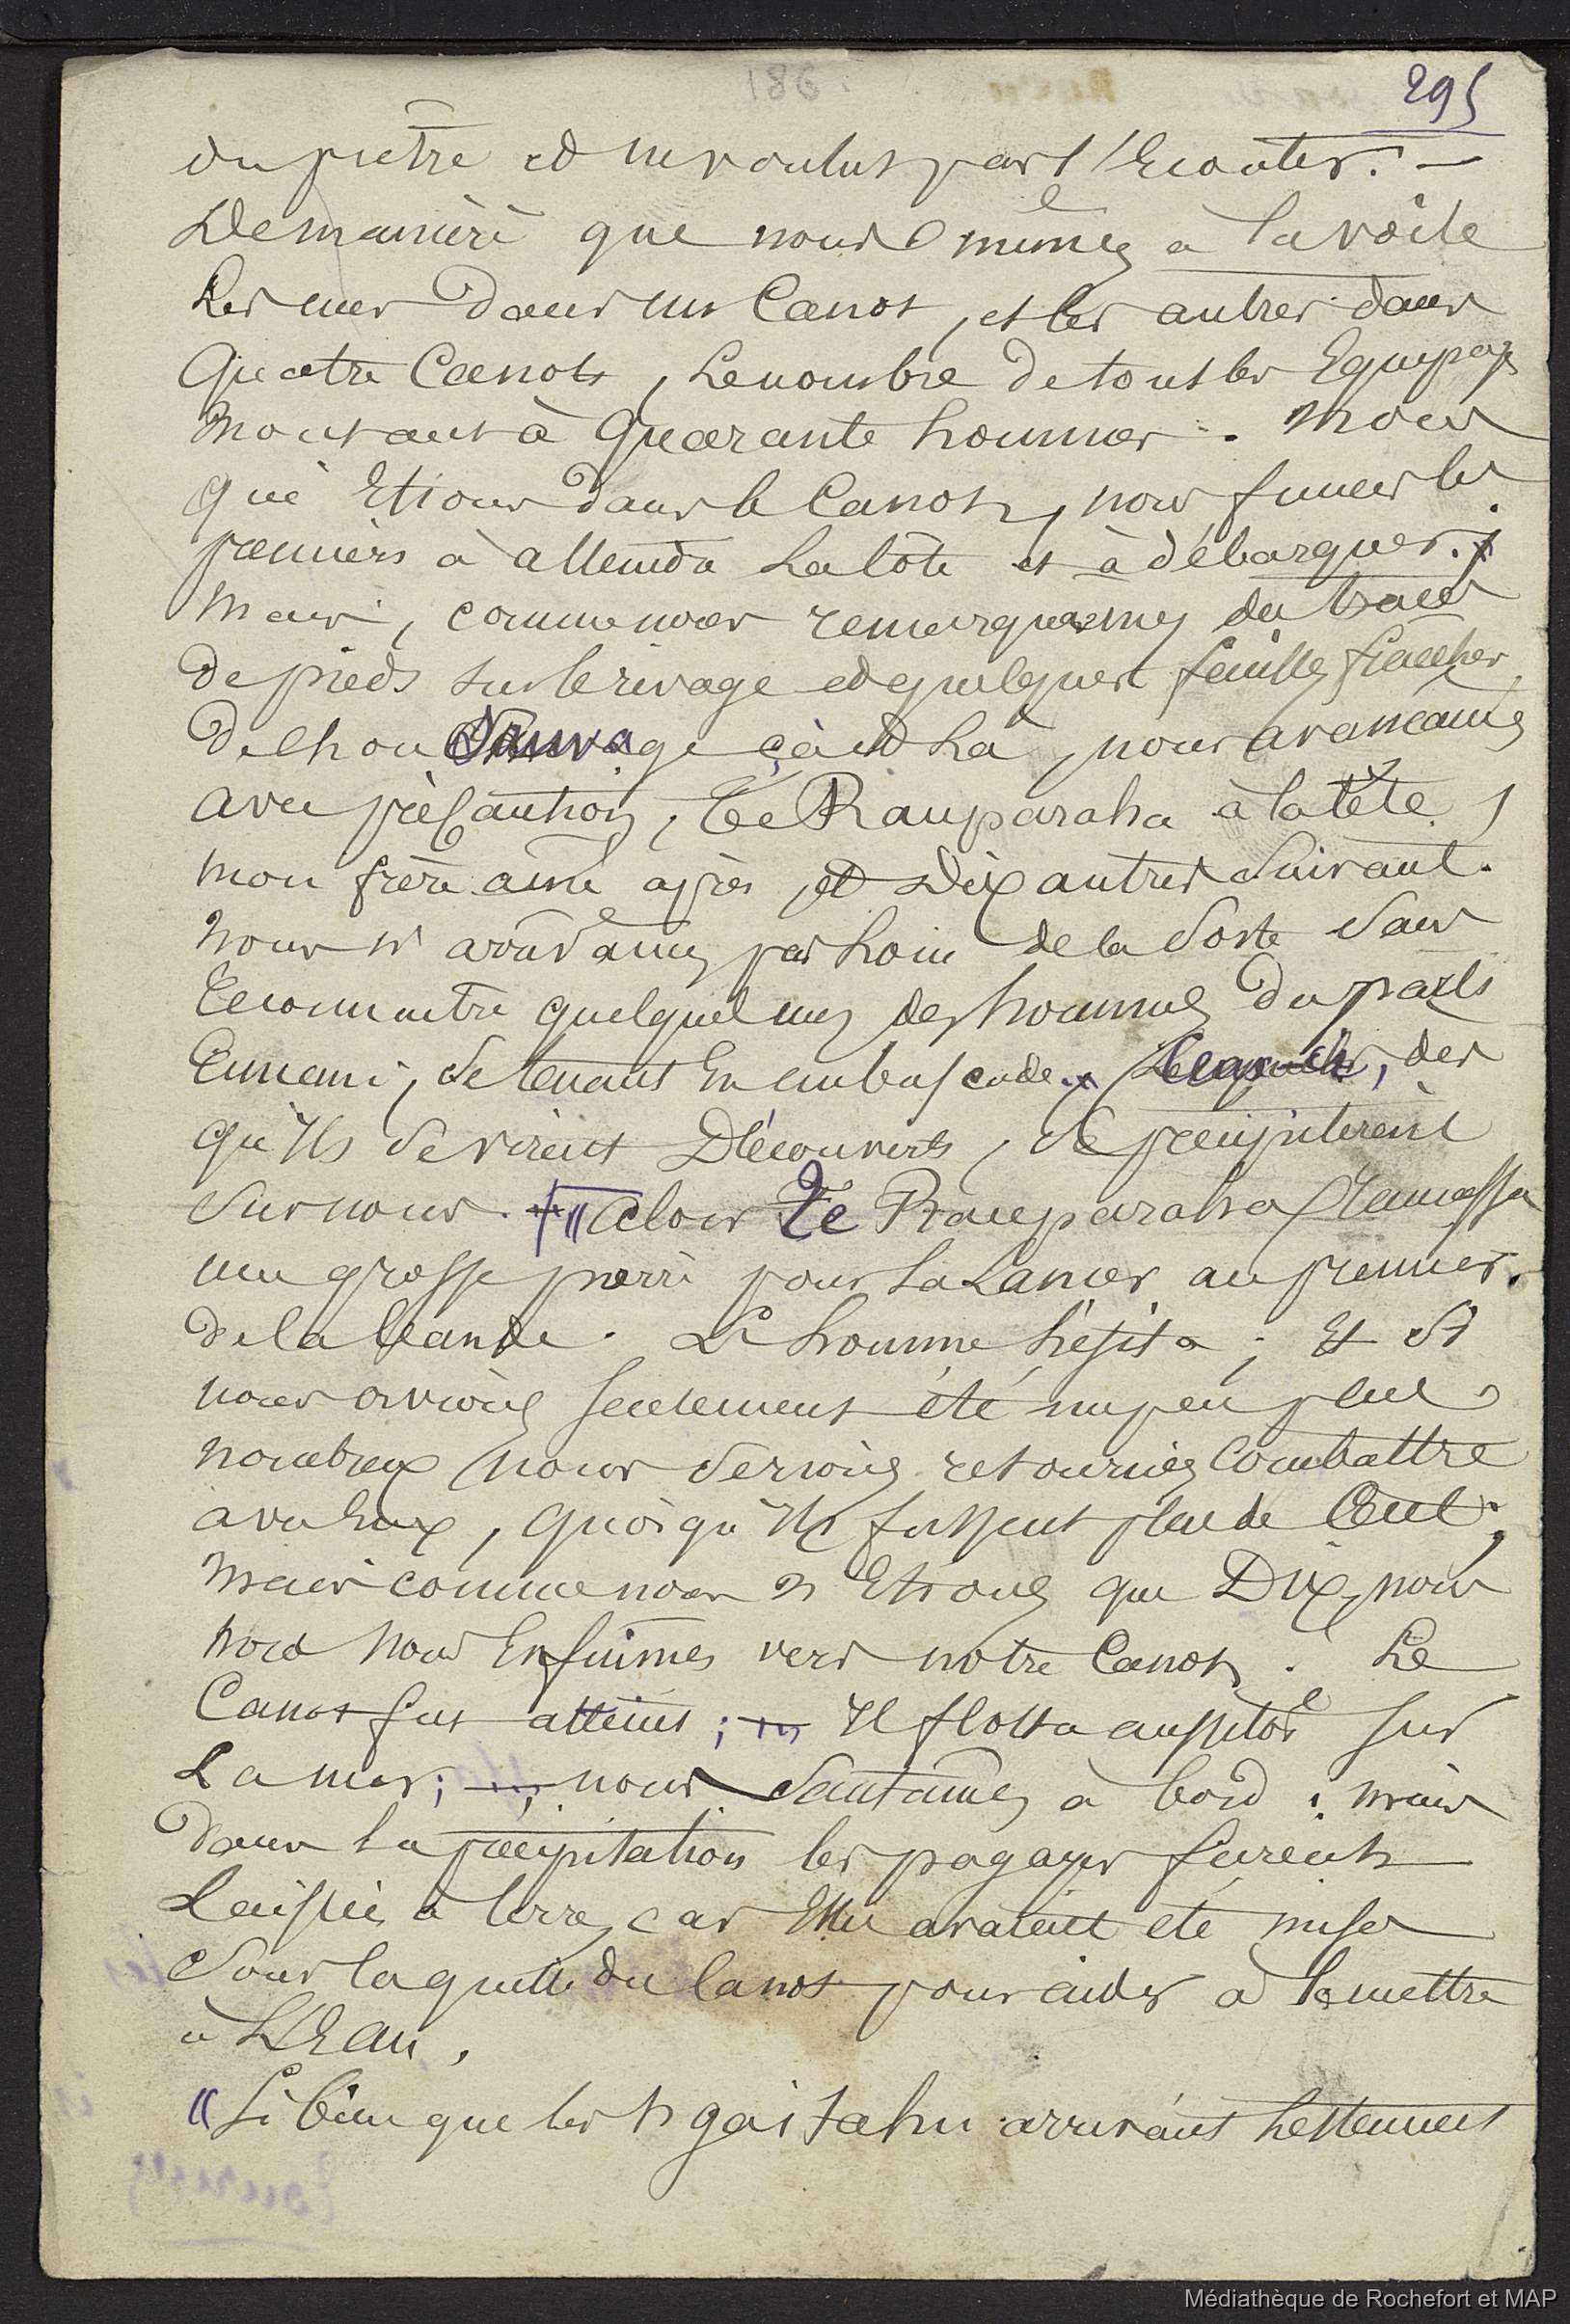 186
295
du prêtre et ne voulut pas l'Ecouter. —
De manière que nous mîmes à la voile
Les uns dans un Canot, et les autres dans
Quatre Canots, Le nombre de tous les Equipages
montant à Quarante hommes. Nous
qui Etions dans le Canot, nous fumes les
premiers à atteindre La Côte et à débarquer.
Mais, comme nous remarquames des traces
de pieds sur le rivage et quelques feuilles fraiches
de chou Sauvage çà et Là, nous avançames
avec précaution, Te Rauparaha à la tête,
mon frère ainé après et Dix autres Suivant.
Nous n'arrivames pas Loin de la Sorte Sans
reconnaitre quelques uns des hommes du parti
Ennemi, se tenant En embuscade. , des
qu'Ils se virent Découverts, se précipitèrent
Sur nous. "Alors Te Rauparaha ramassa
une grosse pierre pour La Lancer au premier
de la bande. L'homme hésita ; Et Si
nous avions seulement été un peu plus
nombreux nous serions retournés Combattre
avec Eux, quoiqu'Ils fussent plus de Cent ;
mais comme nous n'Etions que Dix, nous
nous nous Enfuimes vers notre Canot. Le
Canot fut atteint ; Il flotta aussitôt sur
La mer ; nous Sautames à bord : mais
dans la précipitation les pagayes furent
Laissées à terre, car Elles avaient été mises
Sous la quille du Canot pour aider à le mettre
à L'Eau.
"Si bien que les Ngaitahu arrivant tiennent
Médiathèque de Rochefort et MAP